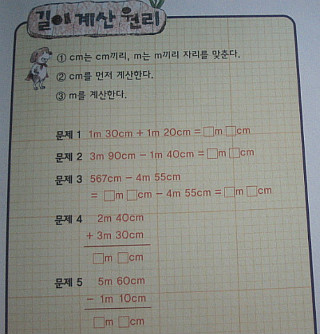 길이 계산 원리
① cm는 cm끼리, m는 m끼리 자리를 맞춘다.
② cm를 먼저 계산한다.
③ m를 계산한다.
문제 1 1m 30cm + 1m 20cm = □m □cm
문제 2 3m 90cm - 1m 40cm = □m □cm
문제 3 567cm - 4m 55cm
= □m □cm - 4m 55cm = □m □cm
문제 4 2m 40cm
+ 3m 30cm
□m □cm
문제 5 5m 60cm
- 1m 10cm
□m □cm